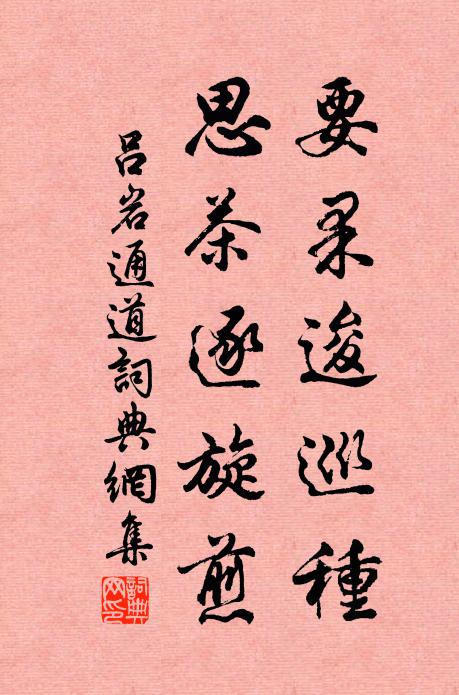 要果逡巡種
思茶逐旋煎
吕岩通道詞典網集
詞典
网印